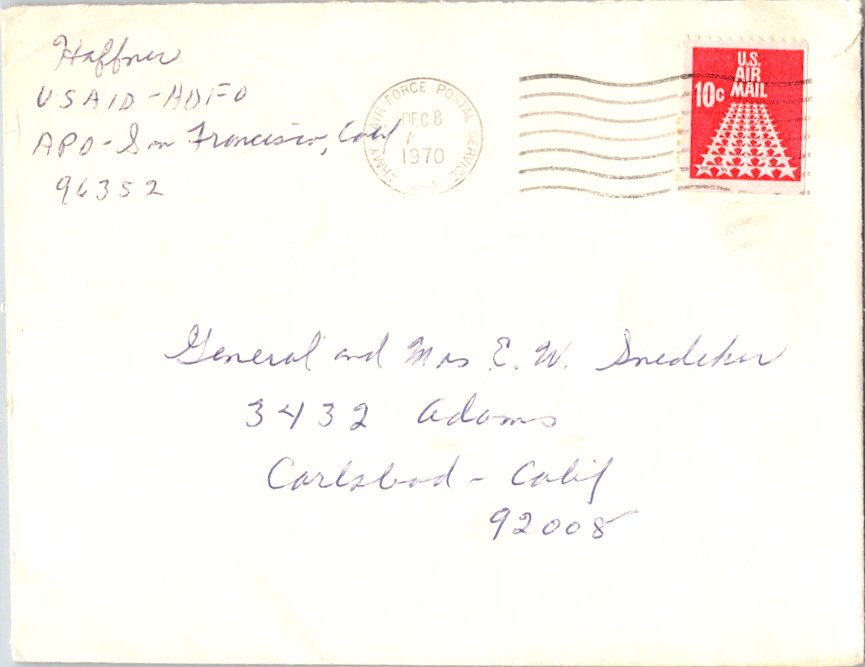 Haffner
USAID-ADFO
APO-San Francisco, Calif
96352
ARMY AIR FORCE POSTAL SERVICE
DEC 8
1970
U.S.
AIR
MAIL
10c
General and Mrs E. W. Snedeker
3432 Adams
Carlsbad - Calif
92008